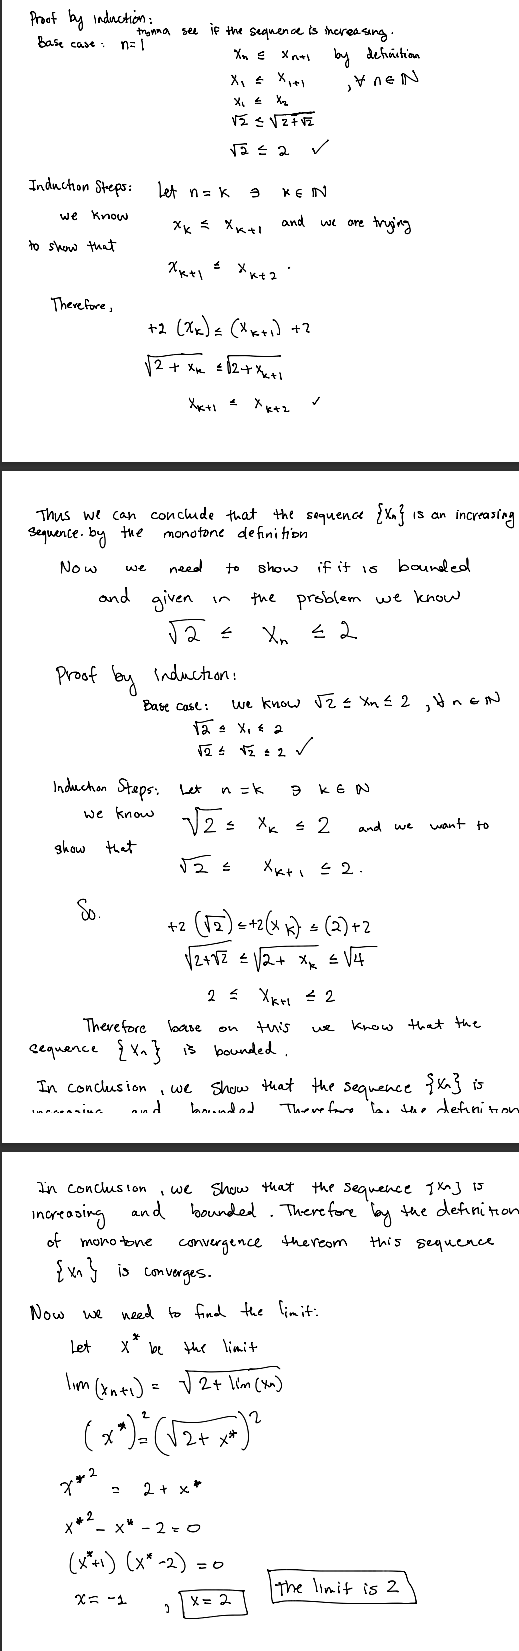 Proof by induction:
trynna see if the sequence is increasing.
Base case: n=1
Xn ≤ Xn+1 by definition
X1 ≤ X1+1 , ∀ n ∈ ℕ
X1 ≤ X2
√2 ≤ √(2+√2)
√2 ≤ 2 ✓
Induction Steps: Let n = k ∋ k ∈ ℕ
we know xk ≤ xk+1 and we are trying
to show that
xk+1 ≤ xk+2 .
Therefore,
+2 (xk) ≤ (xk+1) +2
√(2 + xk) ≤ √(2 + xk+1)
xk+1 ≤ xk+2 ✓
Thus we can conclude that the sequence {xn} is an increasing
sequence. by the monotone definition
Now we need to show if it is bounded
and given in the problem we know
√2 ≤ Xn ≤ 2
Proof by induction:
Base case: we know √2 ≤ Xn ≤ 2 , ∀ n ∈ ℕ
√2 ≤ X1 ≤ 2
√2 ≤ √2 ≤ 2 ✓
Induction Steps: Let n = k ∋ k ∈ ℕ
we know √2 ≤ Xk ≤ 2 and we want to
show that
√2 ≤ Xk+1 ≤ 2.
So.
+2 (√2) ≤ +2(xk) ≤ (2)+2
√(2+√2) ≤ √(2+ xk) ≤ √4
2 ≤ Xk+1 ≤ 2
Therefore base on this we know that the
sequence {Xn} is bounded.
In conclusion, we show that the sequence {Xn} is
increasing and bounded Therefore by the definition
In conclusion, we show that the sequence {Xn} is
increasing and bounded. Therefore by the definition
of monotone convergence thereom this sequence
{xn} is converges.
Now we need to find the limit:
Let x* be the limit
lim (xn+1) = √(2+ lim(xn))
(x*)² = (√(2+ x*))²
x*² = 2 + x*
x*² - x* - 2 = 0
(x*+1) (x*-2) = 0
x = -1 , x = 2 The limit is 2